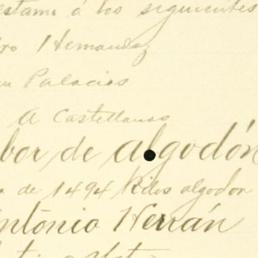 estamo á los siguientes
ro Hernandez
Palacios
A Castellanos
bor de algodón
de 1494 Kilos algodon
ntonio Herrán